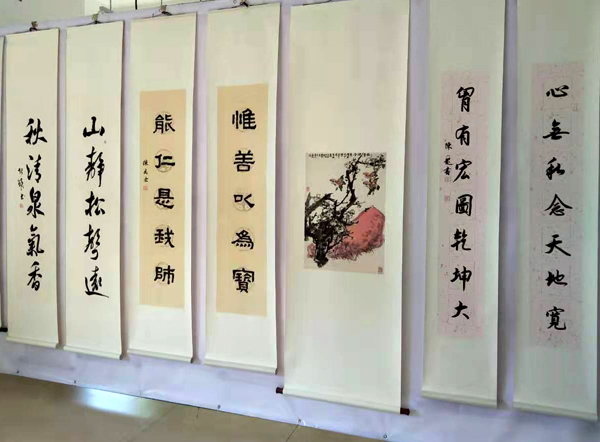 心無私念天地寬
胷有宏圖乾坤大
惟善㕥為寶
能仁是我師
山靜松聲遠
秋清泉氣香